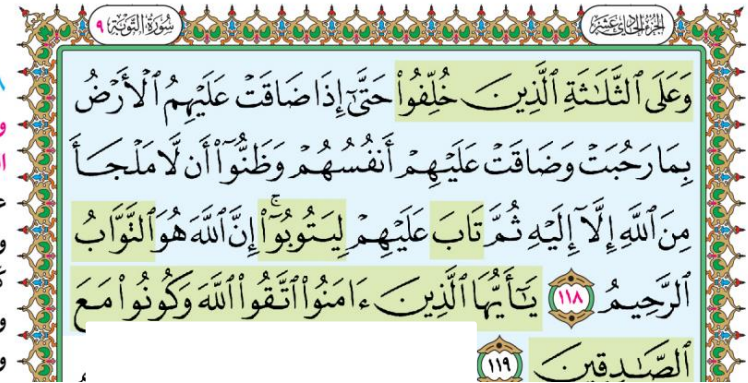 سُورَةُ التَّوْبَةِ ٩
الجُزْءُ الحَادِي عَشَرَ
وَعَلَى ٱلثَّلَٰثَةِ ٱلَّذِينَ خُلِّفُوا۟ حَتَّىٰٓ إِذَا ضَاقَتْ عَلَيْهِمُ ٱلْأَرْضُ
بِمَا رَحُبَتْ وَضَاقَتْ عَلَيْهِمْ أَنفُسُهُمْ وَظَنُّوٓا۟ أَن لَّا مَلْجَأَ
مِنَ ٱللَّهِ إِلَّآ إِلَيْهِ ثُمَّ تَابَ عَلَيْهِمْ لِيَتُوبُوٓا۟ ۚ إِنَّ ٱللَّهَ هُوَ ٱلتَّوَّابُ
ٱلرَّحِيمُ ١١٨ يَٰٓأَيُّهَا ٱلَّذِينَ ءَامَنُوا۟ ٱتَّقُوا۟ ٱللَّهَ وَكُونُوا۟ مَعَ
ٱلصَّٰدِقِينَ ١١٩